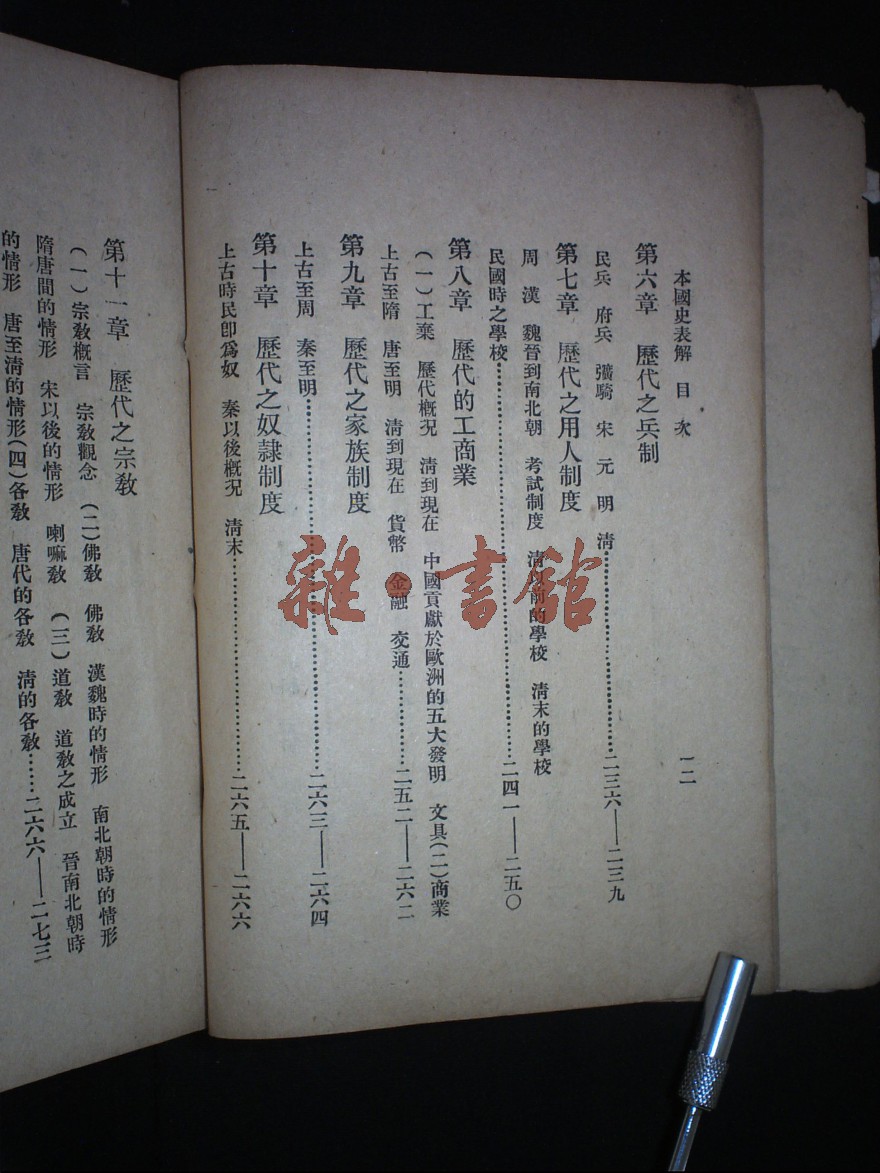 本國史表解 目次 一二
第六章 歷代之兵制
民兵 府兵 彍騎 宋 元 明 清……二三六——二三九
第七章 歷代之用人制度
周 漢 魏晉到南北朝 考試制度 清以前的學校 清末的學校
民國時之學校……二四一——二五〇
第八章 歷代的工商業
(一)工藝 歷代概況 清到現在 中國貢獻於歐洲的五大發明 文具(二)商業
上古至隋 唐至明 清到現在 貨幣 金融 交通……二五二——二六二
第九章 歷代之家族制度
上古至周 秦至明……二六三——二六四
第十章 歷代之奴隸制度
上古時民卽爲奴 秦以後概況 清末……二六五——二六六
第十一章 歷代之宗敎
(一)宗敎概言 宗敎觀念 (二)佛敎 佛敎 漢魏時的情形 南北朝時的情形
隋唐間的情形 宋以後的情形 喇嘛敎 (三)道敎 道敎之成立 晉南北朝時
的情形 唐至清的情形(四)各敎 唐代的各敎 清的各敎……二六六——二七三
雜·書館